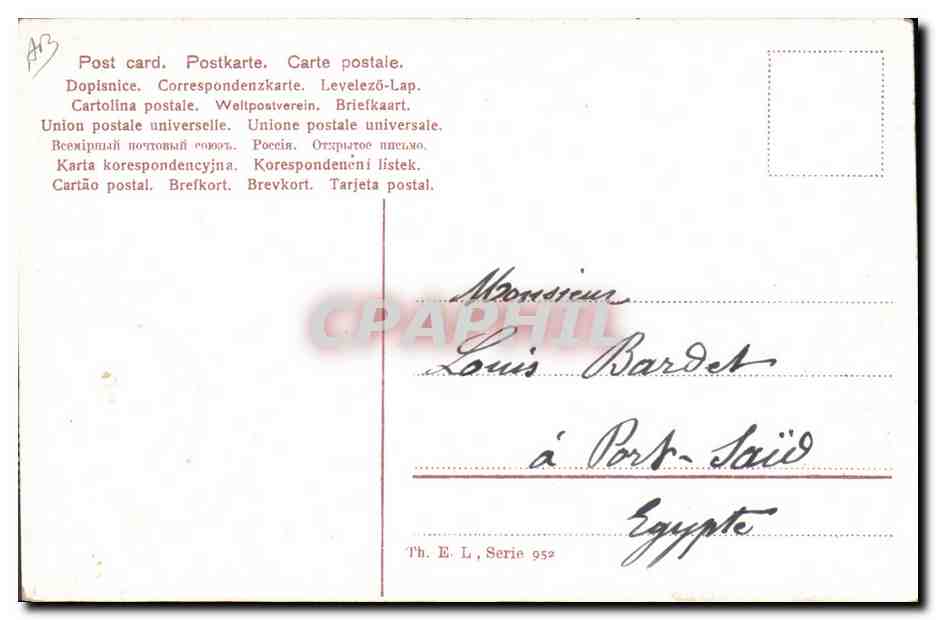 AB
Post card. Postkarte. Carte postale.
Dopisnice. Correspondenzkarte. Levelező-Lap.
Cartolina postale. Weltpostverein. Briefkaart.
Union postale universelle. Unione postale universale.
Всемірный почтовый союзъ. Россія. Открытое письмо.
Karta korespondencyjna. Korespondenční lístek.
Cartão postal. Brefkort. Brevkort. Tarjeta postal.
Monsieur
CPAPHIL
Louis Bardet
á Port-Saïd
Egypte
Th. E. L, Serie 952